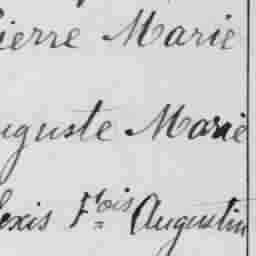 ierre Marie
uguste Marie
exis F.ois Augustin